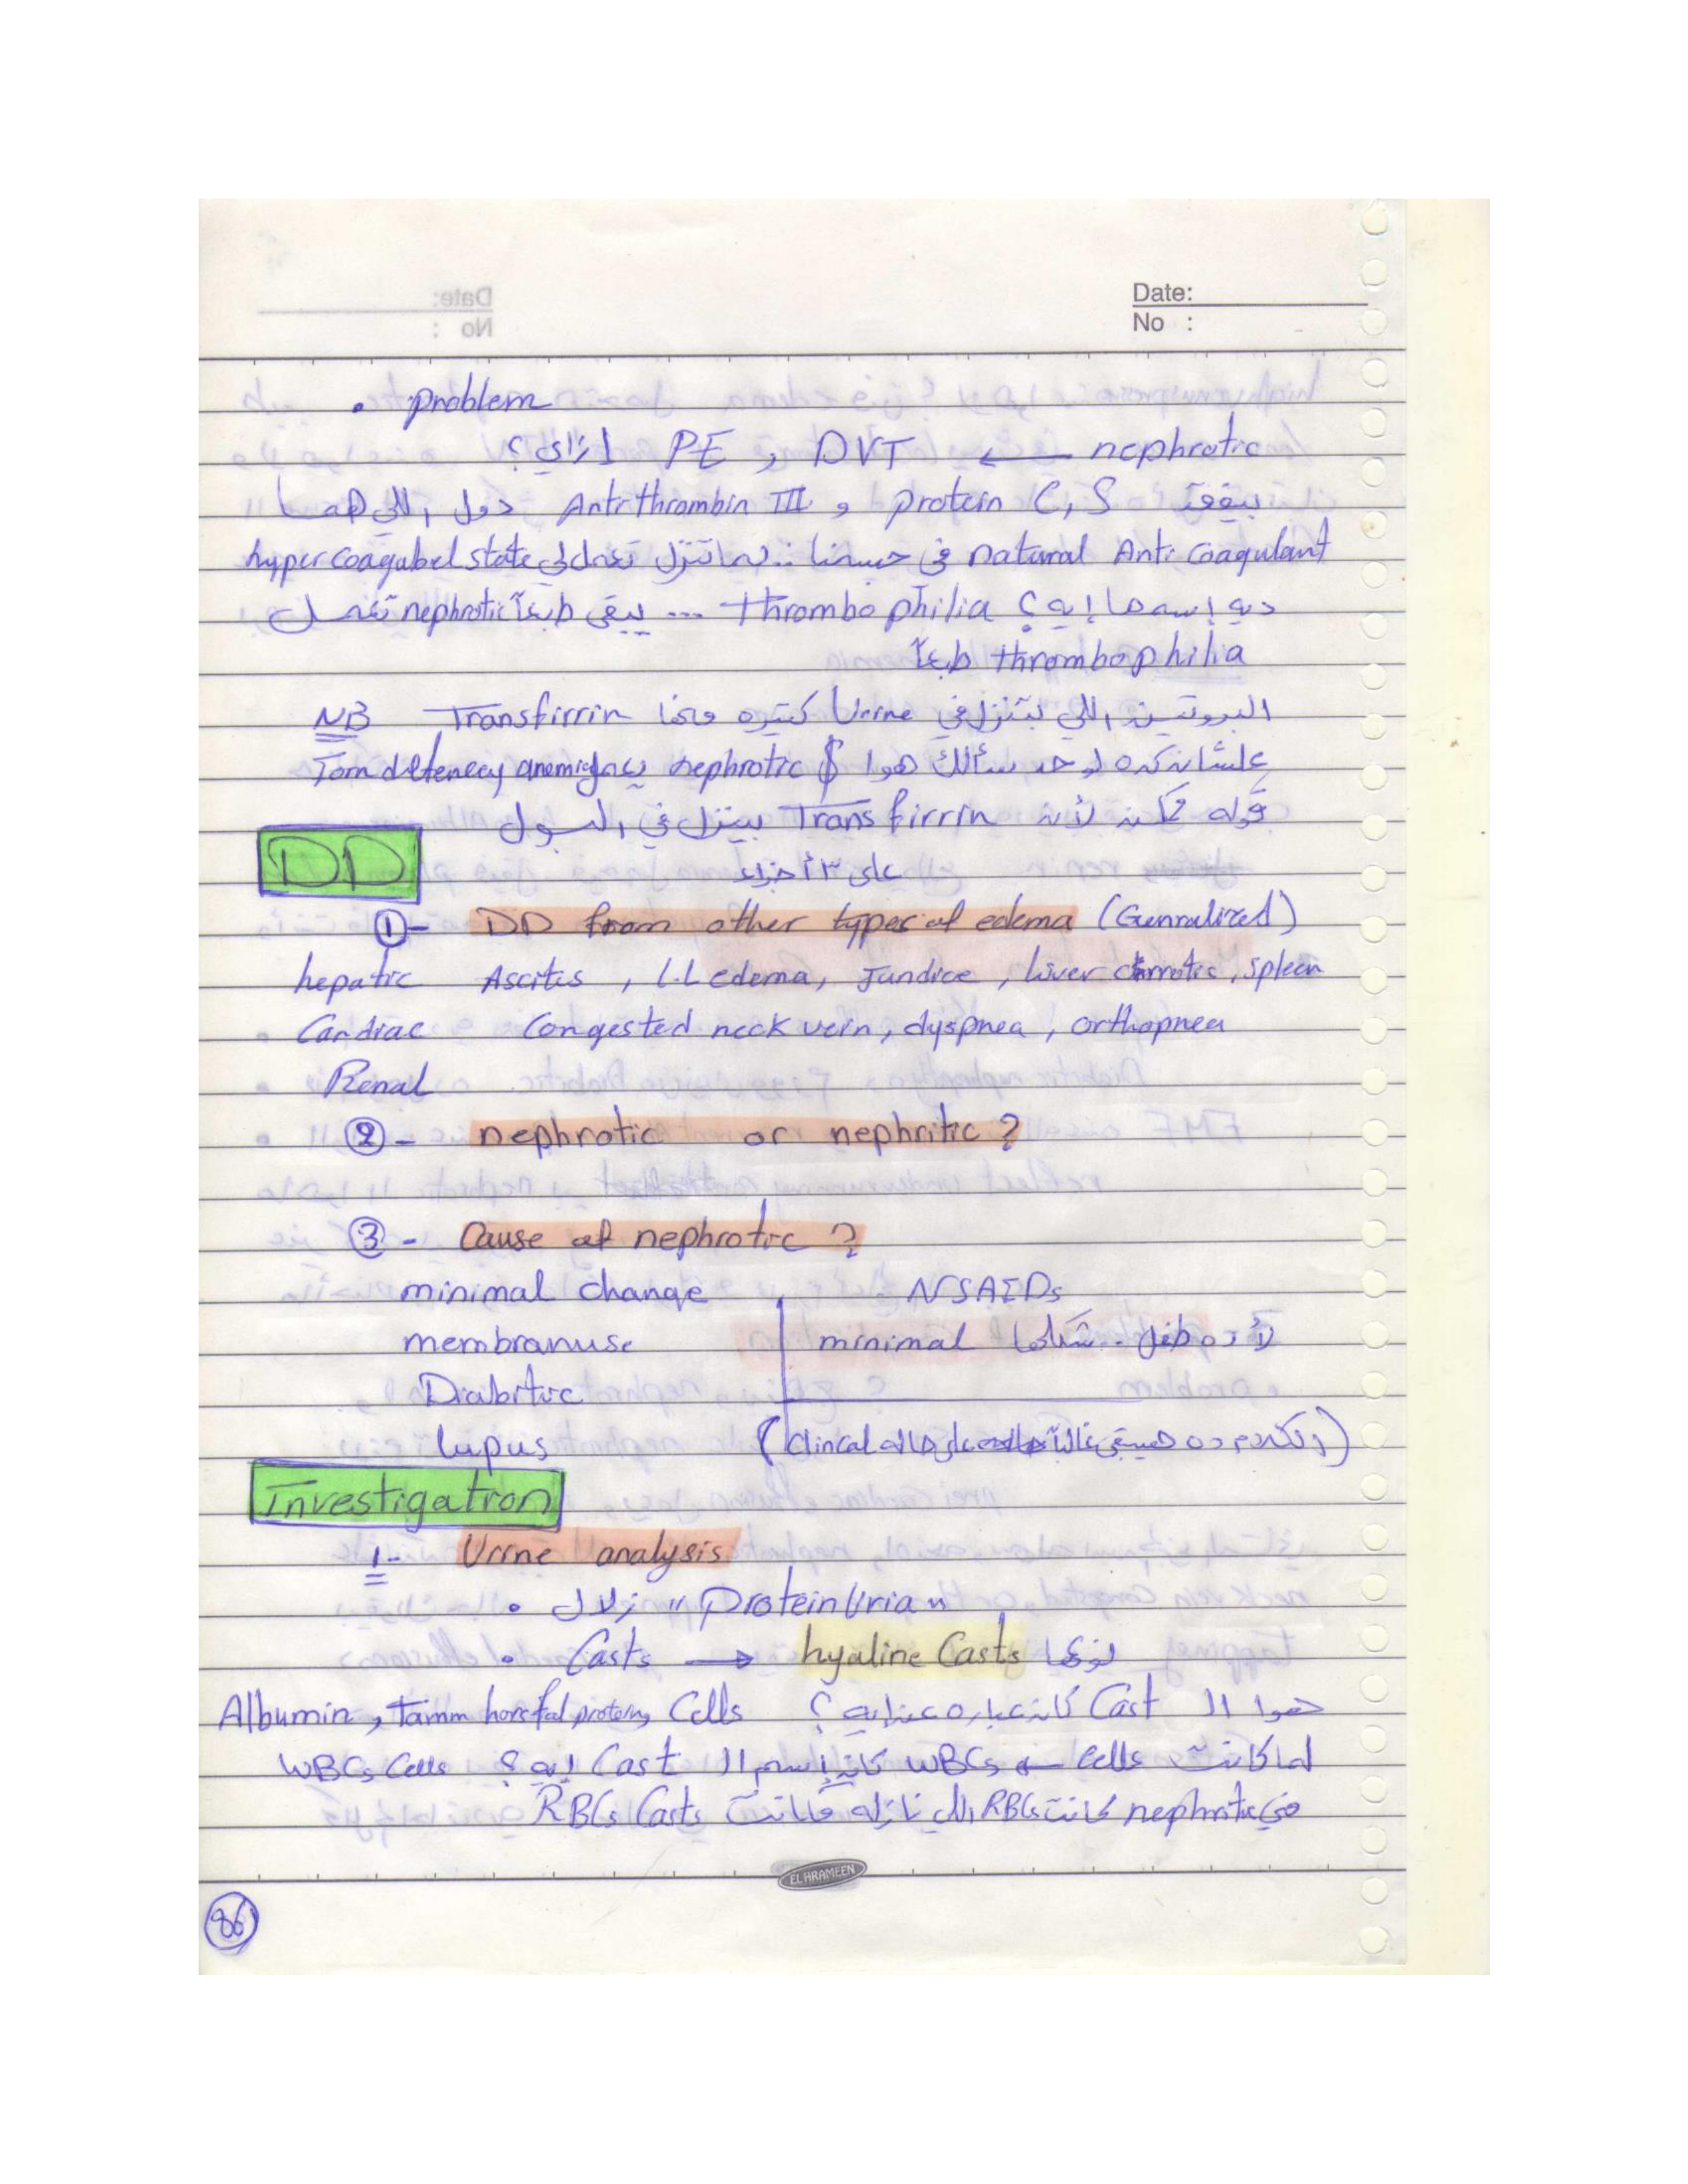 Date:
No :
• problem
nephrotic ← DVT و PE ازاي؟
بيفقد protein C,S و Antithrombin III دول اللي هما
natural Anti coagulant في جسمنا .. لما تنزل تعمل لي hyper coagabel state
ديه إسمها إيه؟ thrombophilia ... يبقى طبعاً nephrotic تعمل
thrombophilia طبعاً
NB البروتين اللي بتنزل في Urine كتيره ومنها Transfirrin
علشان كده لو حد سألك هوا nephrotic $ يعمل Iron defenecy anemia
قوله ممكن لأن Trans firrin بينزل في البول
DD
على ٣ أجزاء
①- DD from other types of edema (Genralized)
hepatic Ascites , L.L edema, Jundice , liver cirrotic , spleen
Cardiac Congested neck vein, dyspnea , orthopnea
Renal
②- nephrotic or nephritic ?
③- Cause of nephrotic ?
minimal change NSAIDs
membranuse لأ ده طفل .. شكلها minimal
Diabitic
lupus (الكلام ده هيبقى غالباً على حاله clincal)
Investigation
1- Urine analysis
• زلال "proteinUria"
• Casts → hyaline Casts نوعها
هوا ال Cast كان عباره عن ايه؟ Albumin , Tamm horsfal protein, Cells
لما كانت cells ← WBCs كان إسم ال Cast ايه؟ WBCs Cells
في nephritic كانت RBCs اللي نازله فكانت RBCs Casts
EL HRAMEEN
86